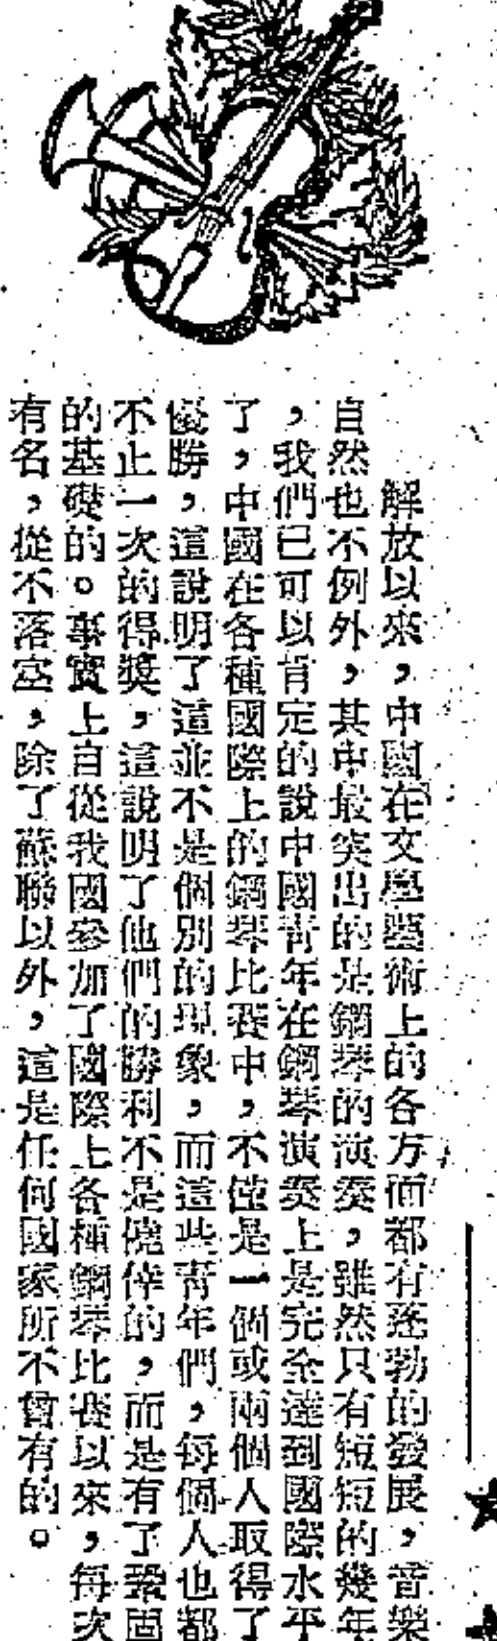 解放以來，中國在文學藝術上的各方面都有蓬勃的發展，音樂
自然也不例外，其中最突出的是鋼琴的演奏，雖然只有短短的幾年
，我們已可以肯定的說中國青年在鋼琴演奏上是完全達到國際水平
了，中國在各種國際上的鋼琴比賽中，不僅是一個或兩個人取得了
優勝，這說明了這並不是個別的現象，而這些青年們，每個人也都
不止一次的得獎，這說明了他們的勝利不是僥倖的，而是有了鞏固
的基礎的。事實上自從我國參加了國際上各種鋼琴比賽以來，每次
有名，從不落空，除了蘇聯以外，這是任何國家所不曾有的。